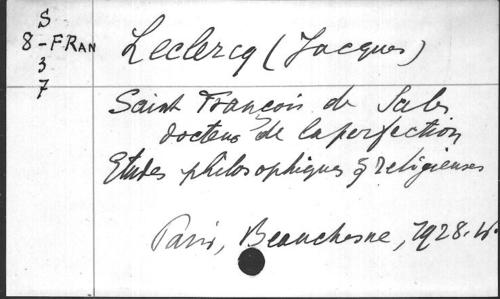 S
8-FRan
3
7
Leclercq (Jacques)
Saint François de Sales
docteur de la perfection
Etudes philosophiques & religieuses
Paris, Beauchesne, 1928.